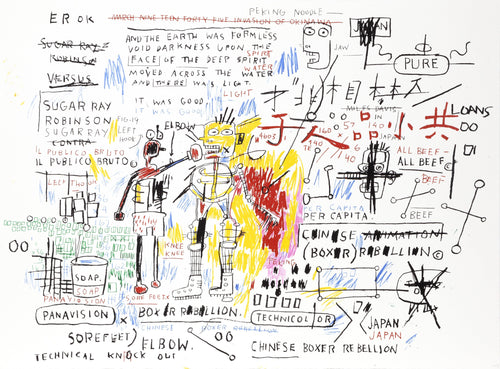 PEKING NOODLE—
EROK
MARCH NINETEEN FORTY FIVE INVASION OF OKINAWA
JAPAN
AND THE EARTH WAS FORMLESS
VOID DARKNESS UPON THE
FACE OF THE DEEP SPIRIT
SPIRIT
MOVED ACROSS THE WATER
WATER
AND THERE WAS LIGHT
LIGHT
IT WAS GOOD
IT WAS GOOD
SUGAR RAY
ROBINSON
VERSUS
JAW
PURE
MILES DAVIS
LOANS
SUGAR RAY
ROBINSON
SUGAR RAY
CONTRA
LEFT
HOOK
ELBOW
人品小共
IL PUBLICO BRUTO©
IL PUBLICO BRUTO©
ALL BEEF
ALL BEEF
BEEF
BEEF
PER CAPITA
PER CAPITA
CHINESE ANIMATION
(BOXER) REBELLION©
KNEE
KNEE
SOAP.
SOAP
PANAVISION
PANAVISION
BOXER REBELLION.
CHINESE BOXER REBELLION
TECHNICOLOR
JAPAN
JAPAN
SOREFEET)
ELBOW.
TECHNICAL KNOCK OUT
CHINESE BOXER REBELLION